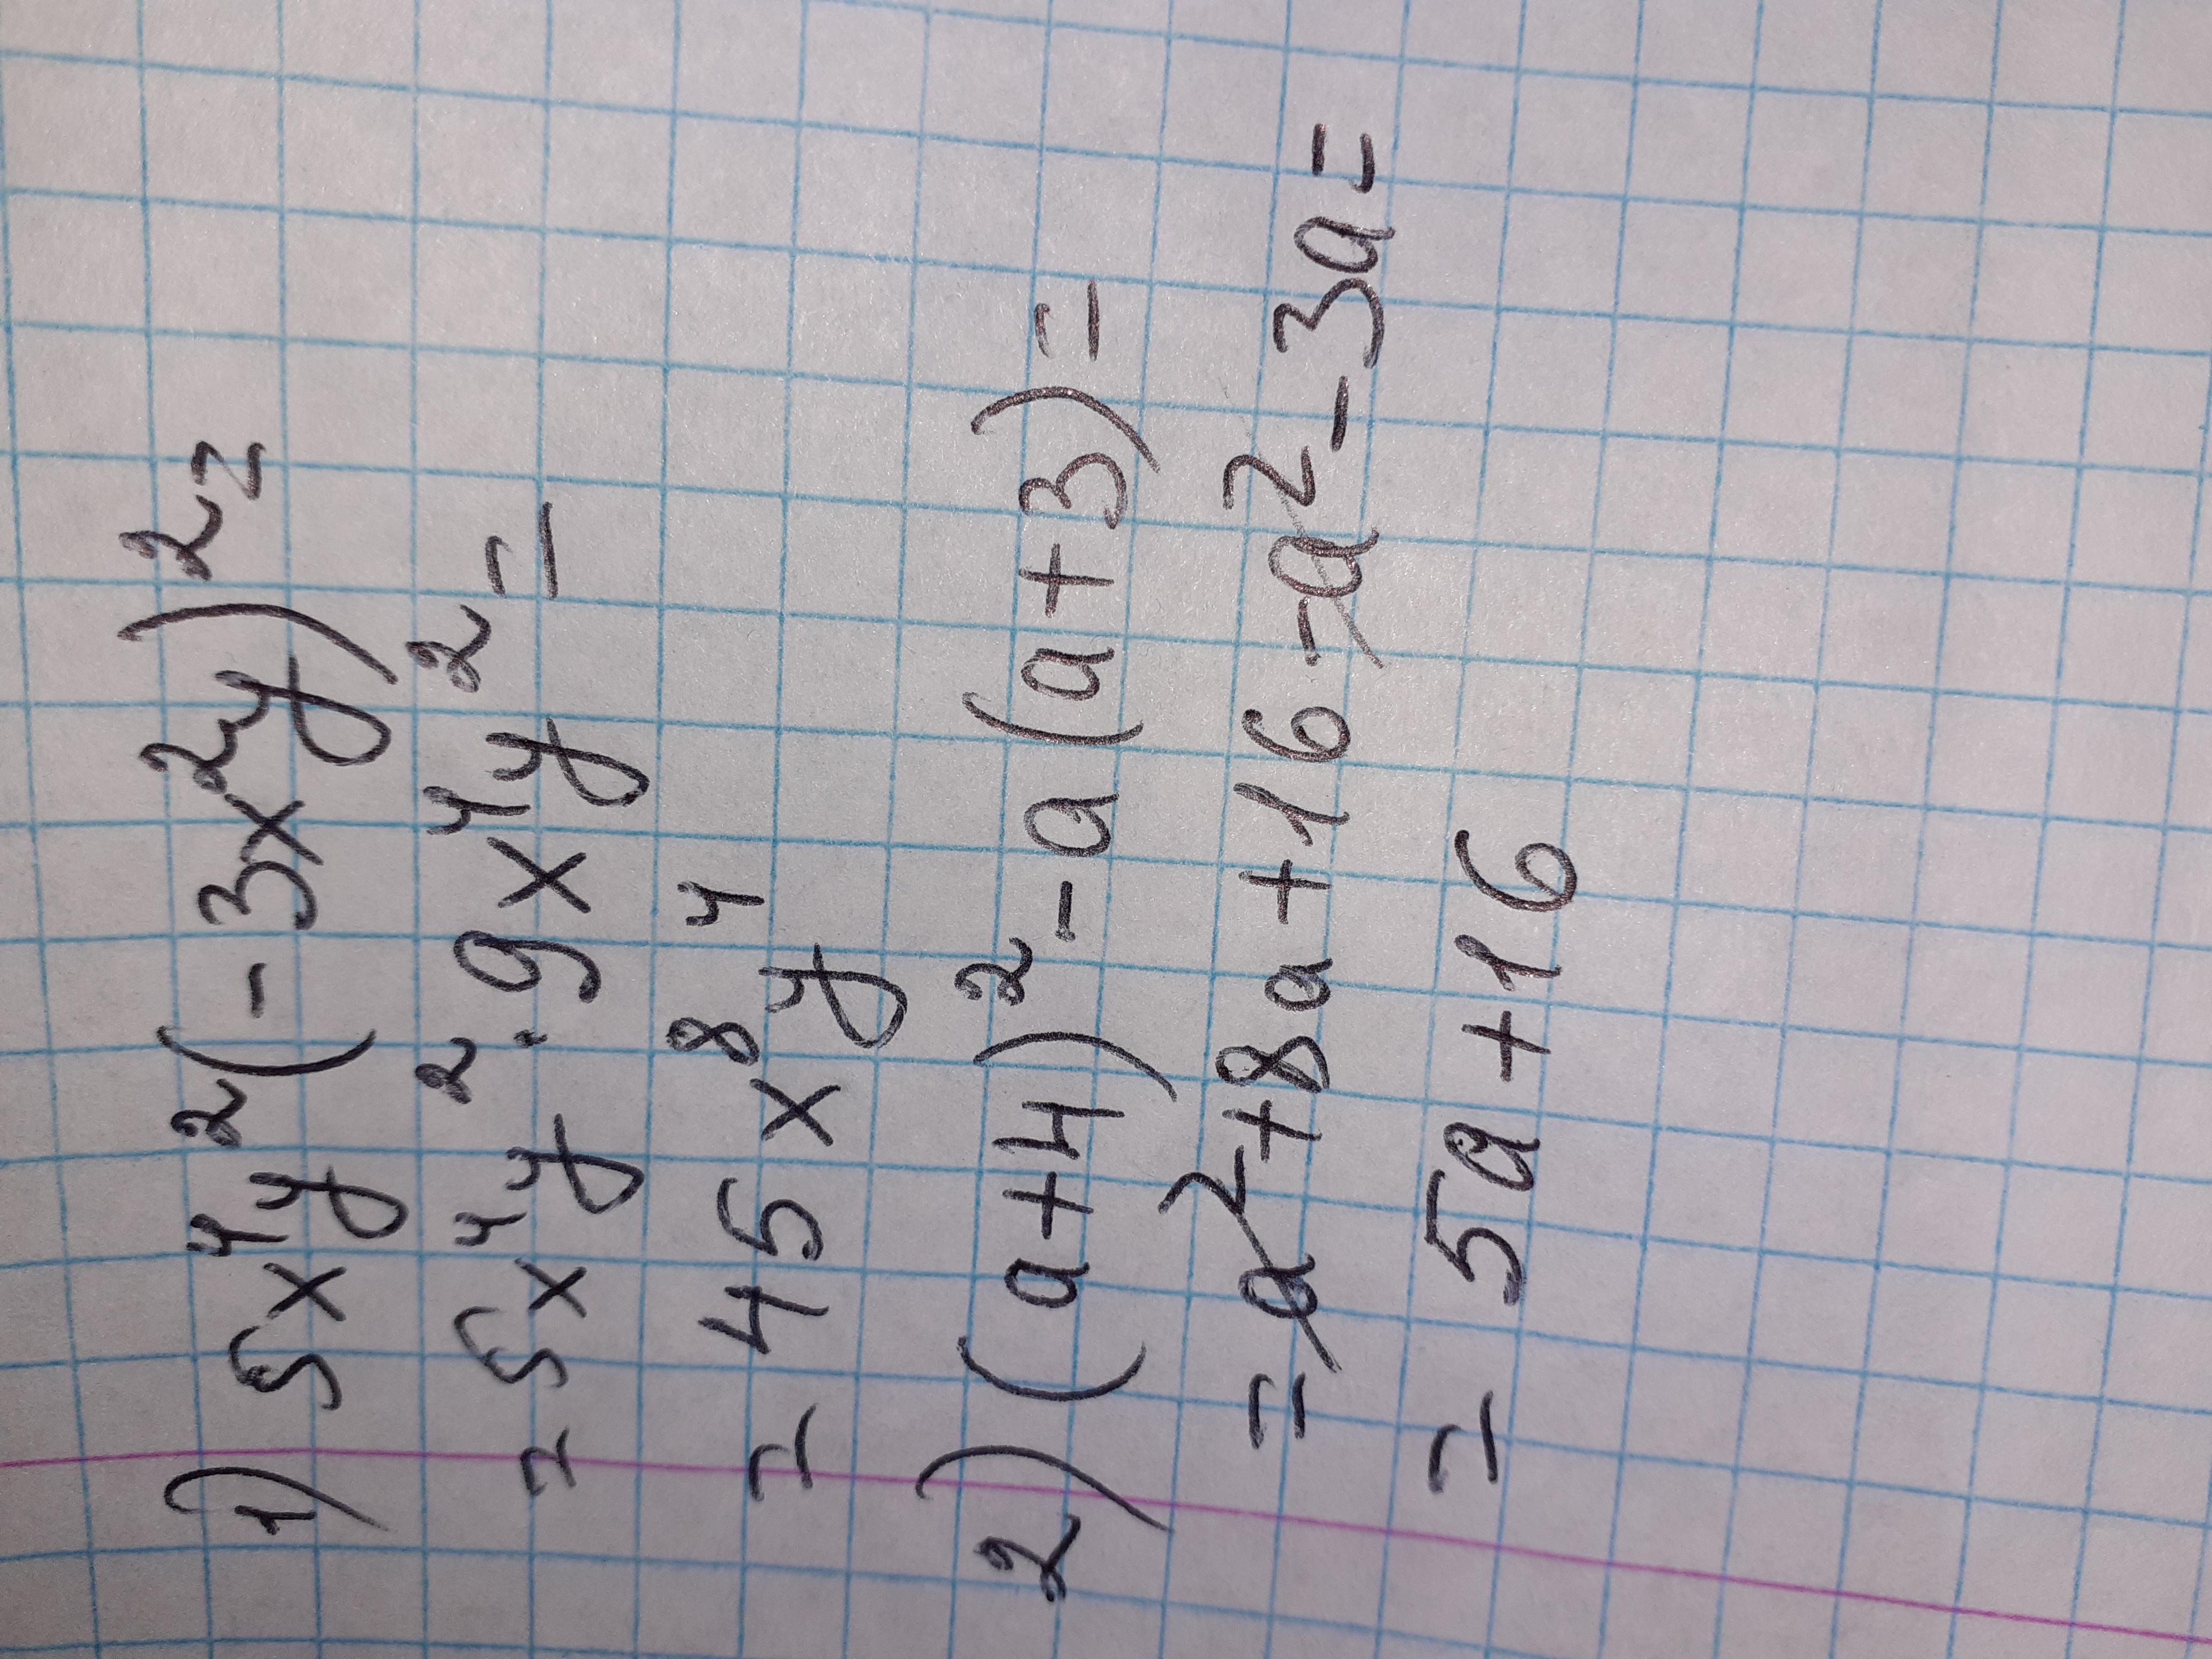 1) 5x⁴y²(-3x²y)²=
=5x⁴y²·9x⁴y²=
=45x⁸y⁴
2) (a+4)²-a(a+3)=
=a²+8a+16-a²-3a=
=5a+16